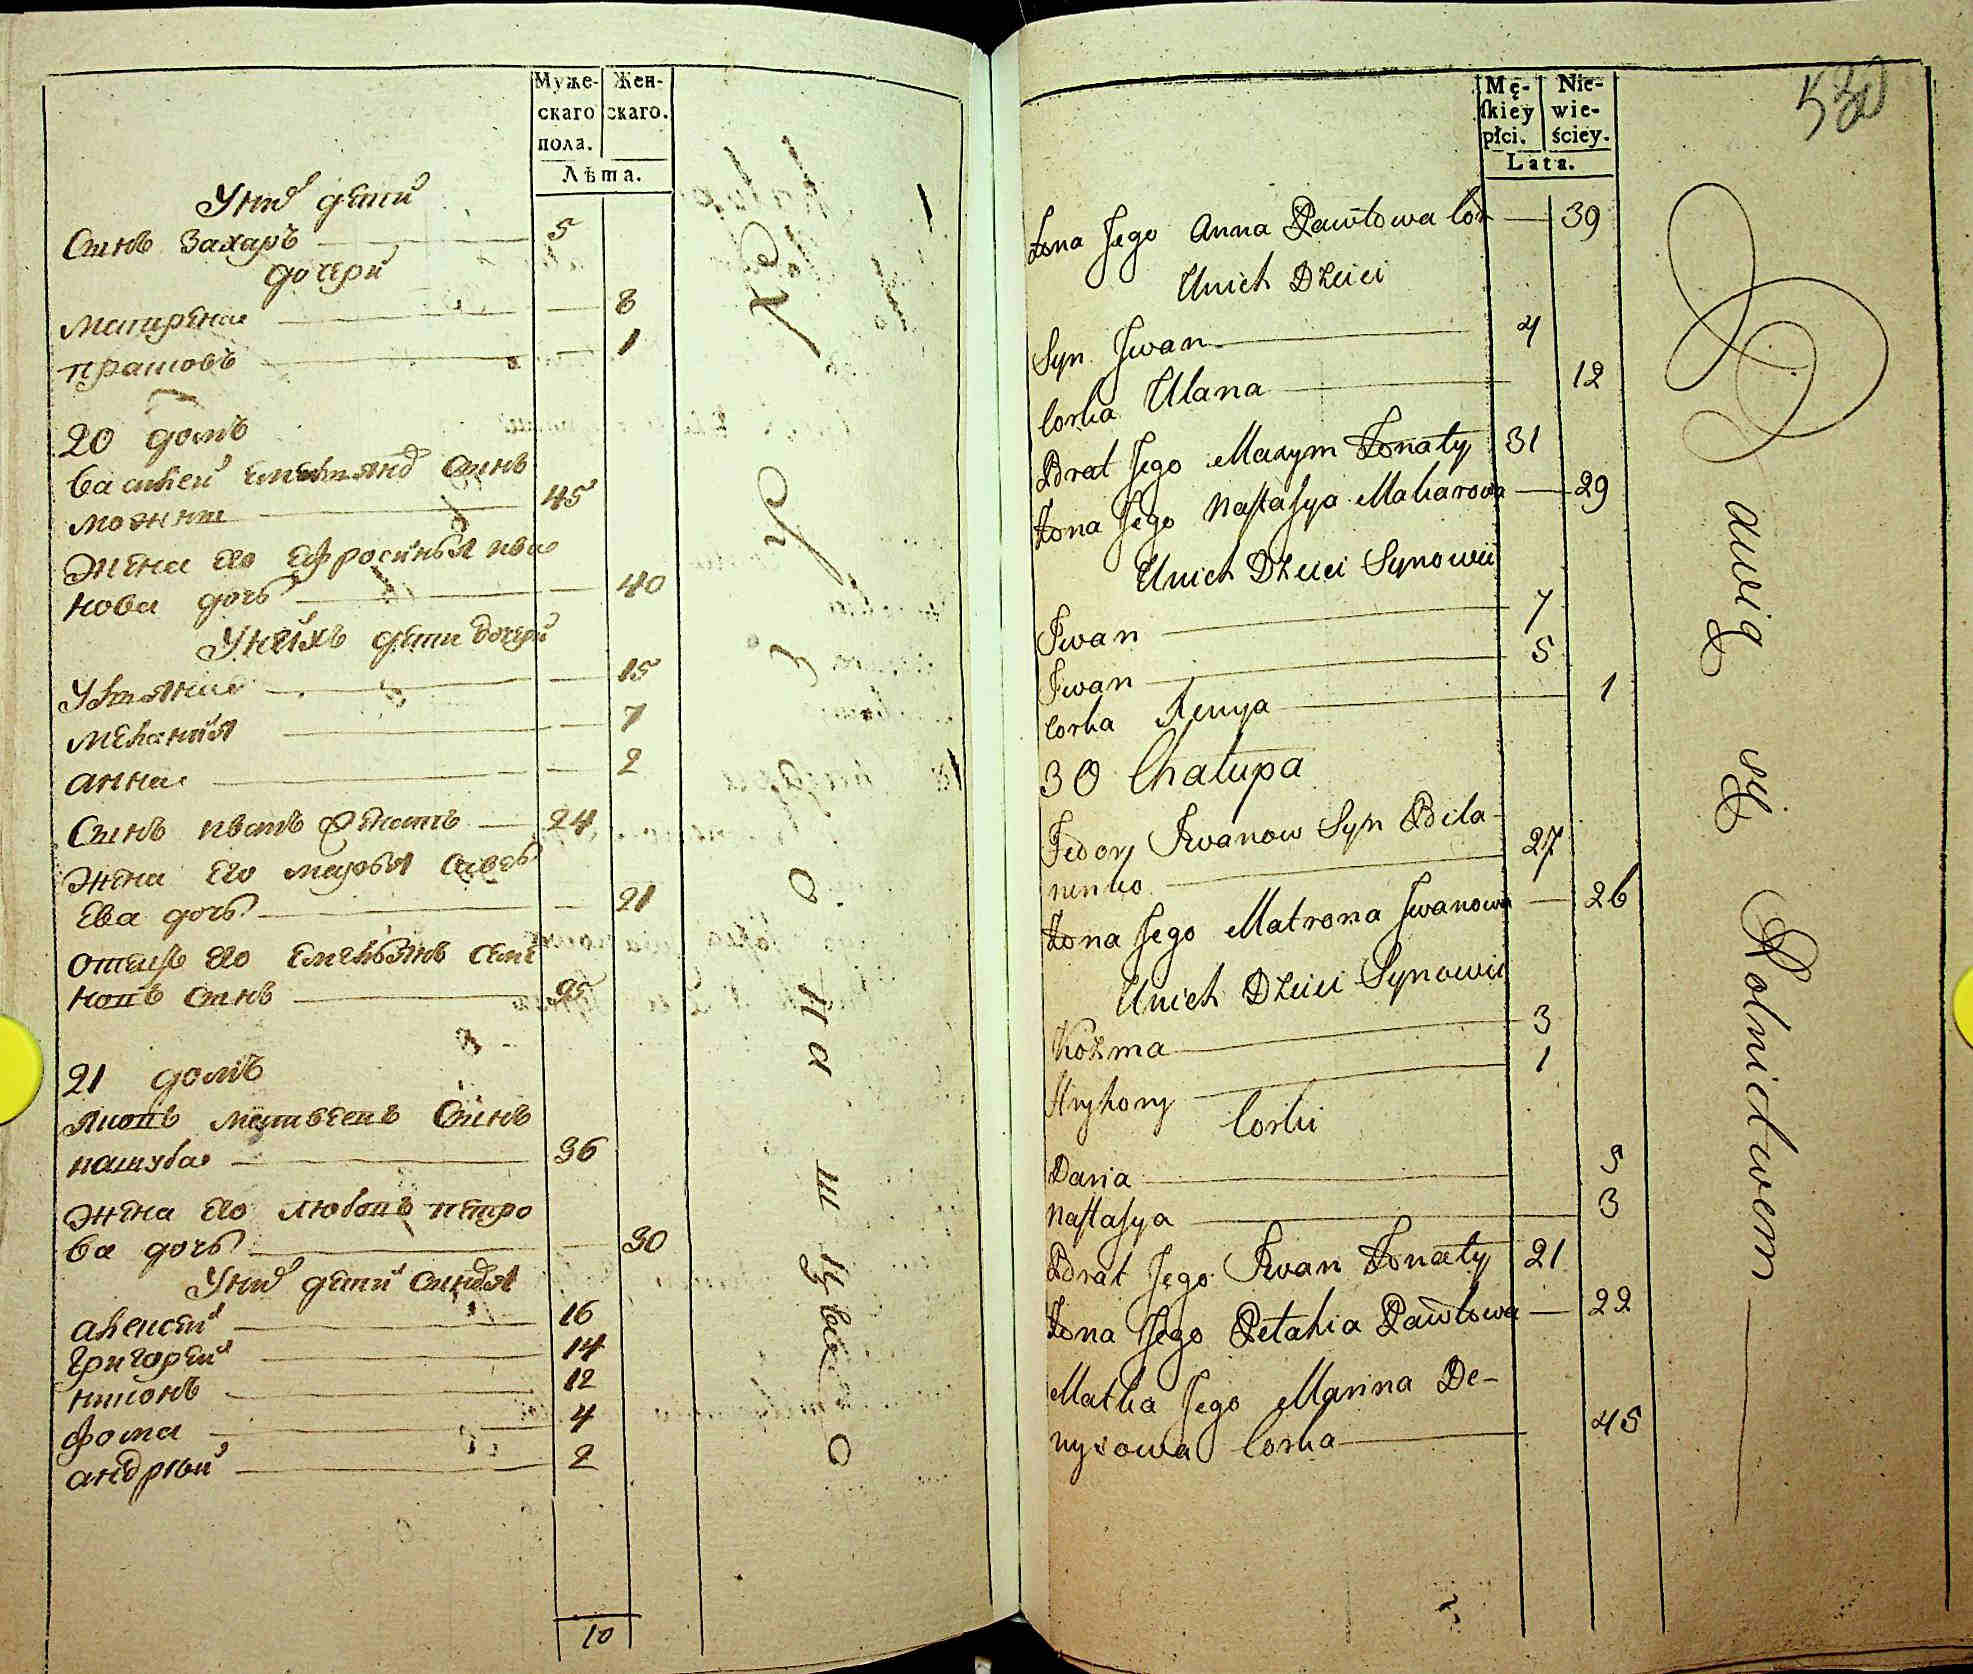 Муже-
скаго
пола.
Жен-
скаго.
Лѣта.
Унид дети
Синъ Захаръ 5
дочери
Матирена 8
прасковъ 1
20 домъ
Синъ
45
Жена его Ефросинья ива
нова дочъ 40
Унеихъ дети дочери
Улияния 15
Мелания 7
анна 2
Синъ иванъ жонатъ 24
Жена его марья савѣ
ева дочъ 21
Отецъ его Емельянъ семе
новъ синъ 95
21 домъ
Яковъ матвеевъ Синъ
кашуба 36
Жена его любовъ петро
ва дочъ 30
Унид дети синовя
алексей 16
Григорей 14
никонъ 12
фома 4
андрѣй 2
10
Mę-
ſkiey
płci.
Nie-
wie-
ściey.
Lata.
530
Żona Jego Anna Pawłowa Cór 39
Unich Dzieci
Syn Jwan 4
Corka Ulana 12
Brat Jego Maxym Żonaty 31
Żona Jego Naſtaſya Makarowa 29
Unich Dzieci Synowii
Jwan 7
Jwan 5
Corka Xenya 1
30 Chałupa
Fedory Jwanow Syn Bila-
nenko 27
Żona Jego Matrona Jwanowa 26
Unich Dzieci Synowii
Kozma 3
Hryhory 1
Corki
Daria 5
Naſtaſya 3
Brat Jego Jwan Żonaty 21
Żona Jego Petahia Pawłowa 22
Matka Jego Marina De-
nysowa Corka 45
Bawią się Rolnictwem